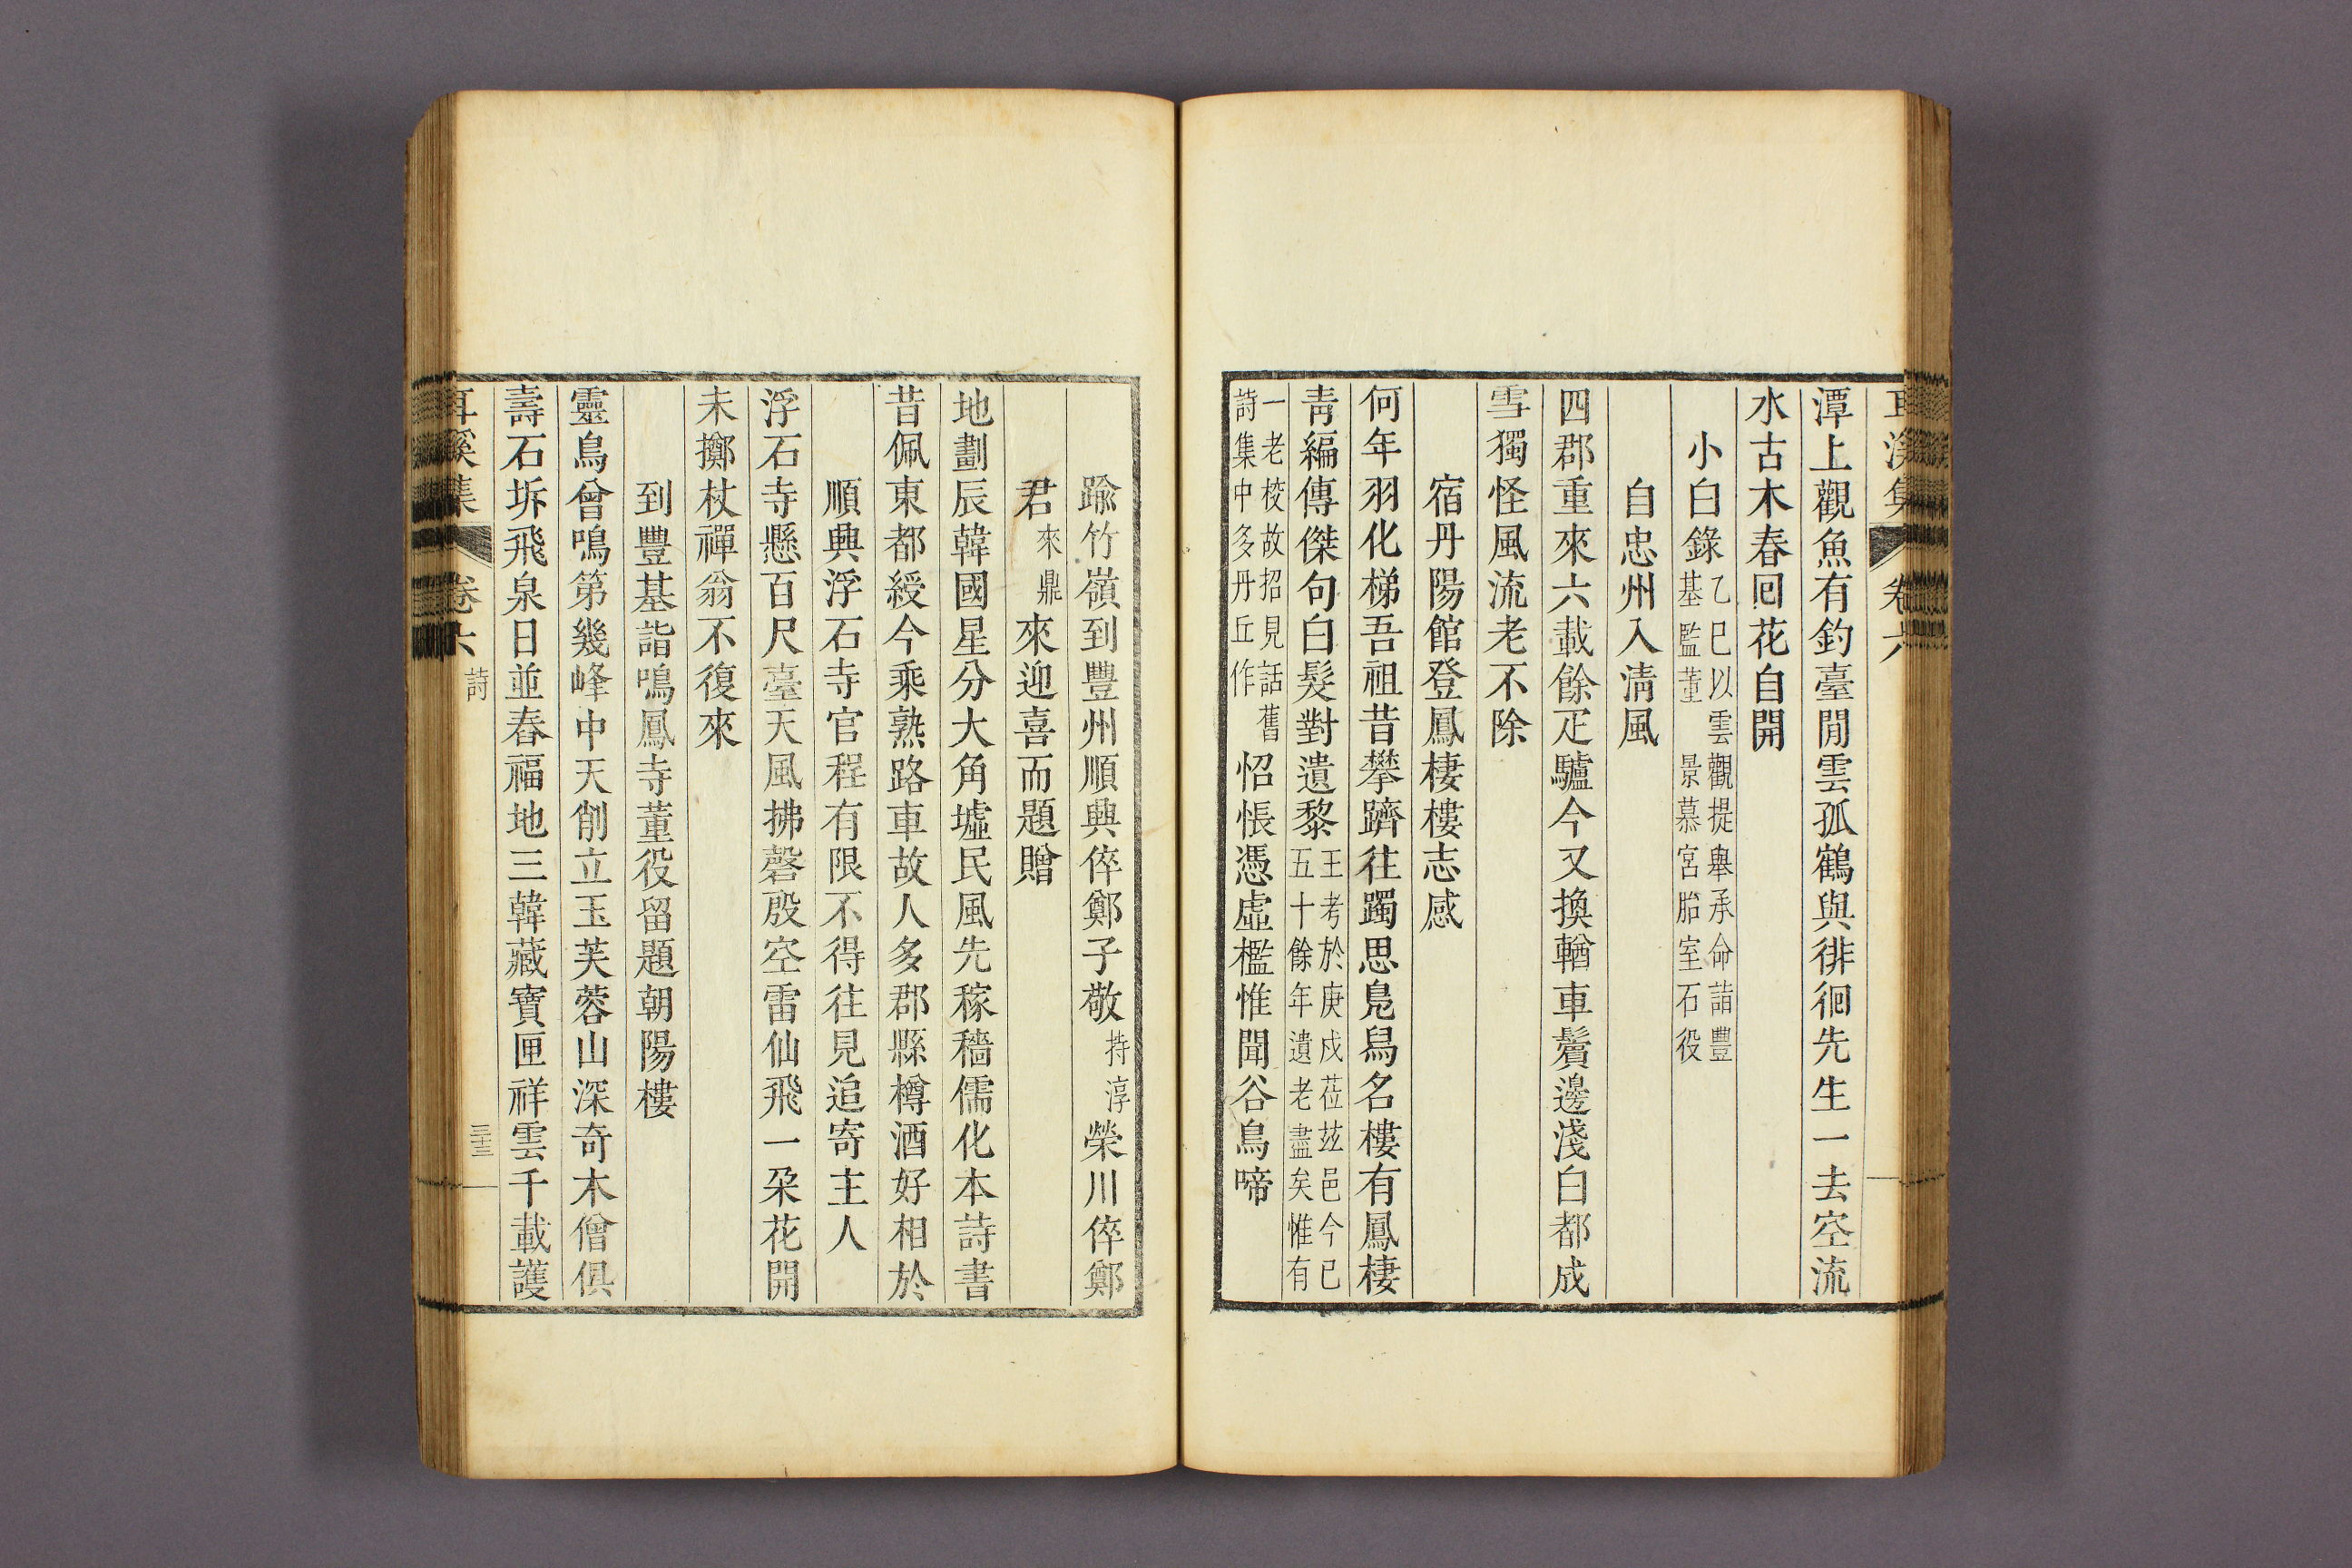 耳溪集 卷六
潭上觀魚有釣臺閒雲孤鶴與徘徊先生一去空流
水古木春回花自開
小白錄 乙巳以雲觀提舉承命詣豐
基監董 景慕宮胎室石役
自忠州入淸風
四郡重來六載餘疋驢今又換輶車鬢邊淺白都成
雪獨怪風流老不除
宿丹陽館登鳳棲樓志感
何年羽化梯吾祖昔攀躋往躅思鳧舃名樓有鳳棲
靑編傳傑句白髮對遺黎 王考於庚戍莅玆邑今已
五十餘年遺老盡矣惟有
一老校故招見話舊
詩集中多丹丘作 怊悵憑虛檻惟聞谷鳥啼
踰竹嶺到豐州順興倅鄭子敬 持淳 榮川倅鄭
君 來鼎 來迎喜而題贈
地劃辰韓國星分大角墟民風先稼穡儒化本詩書
昔佩東都綬今乘熟路車故人多郡縣樽酒好相於
順興浮石寺官程有限不得往見追寄主人
浮石寺懸百尺臺天風拂磬殷空雷仙飛一朶花開
未擲杖禪翁不復來
到豐基詣鳴鳳寺董役留題朝陽樓
靈鳥曾鳴第幾峰中天削立玉芙蓉山深奇木僧俱
壽石坼飛泉日並舂福地三韓藏寶匣祥雲千載護
耳溪集 卷六 詩 三十三